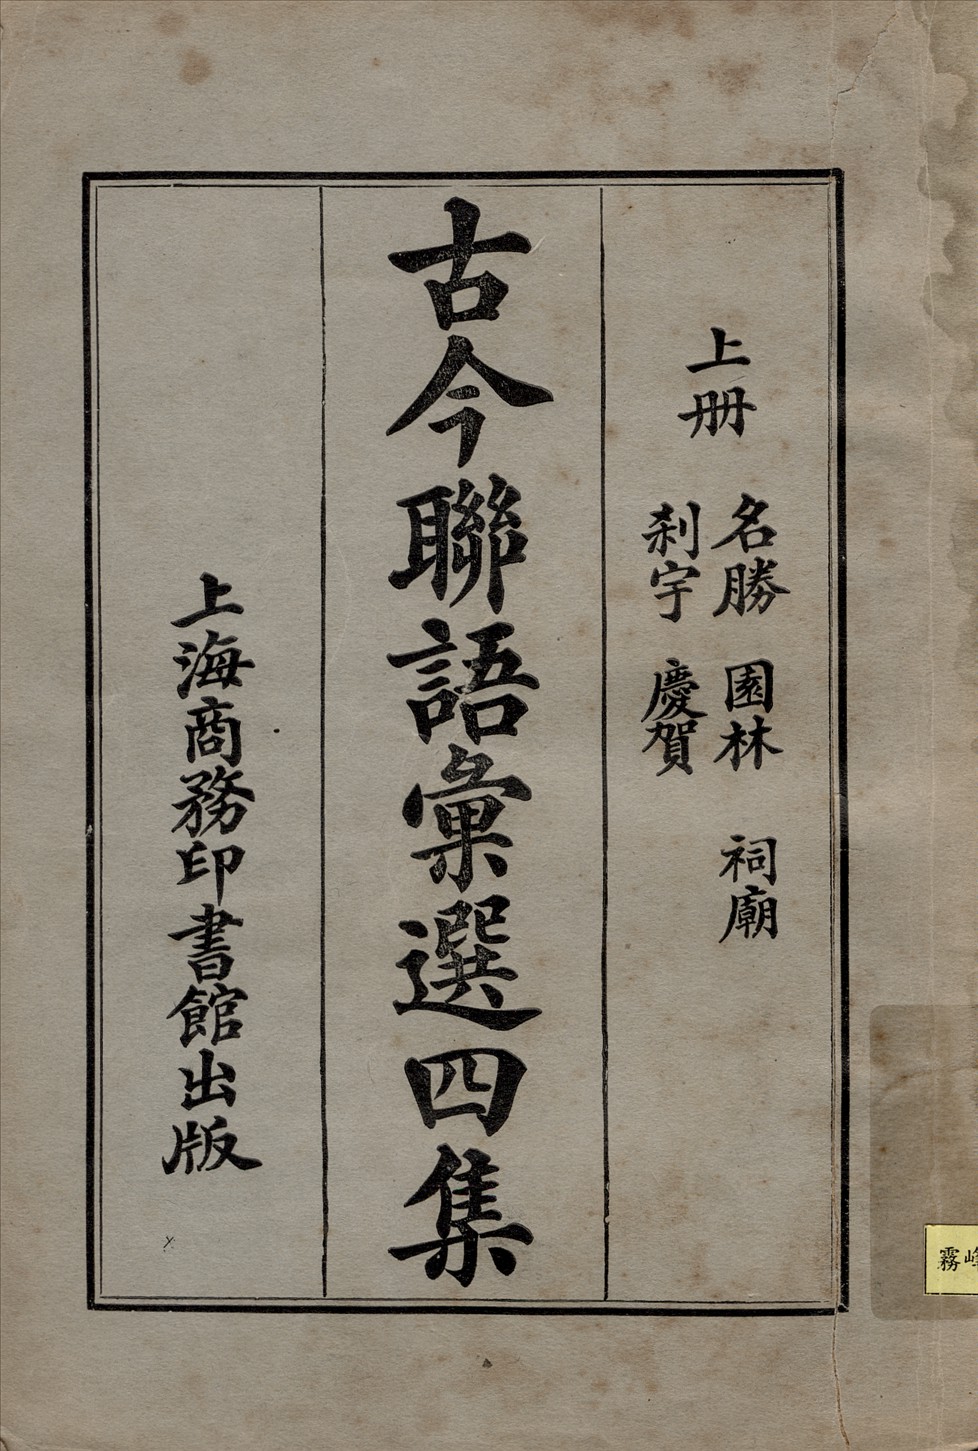 上册
名勝 園林 祠廟
刹宇 慶賀
古今聯語彙選四集
上海商務印書館出版
霧峰